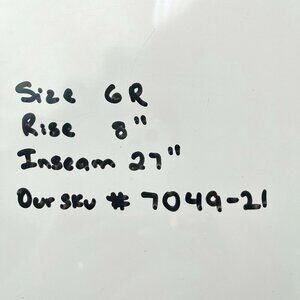 Size 6R
Rise 8"
Inseam 27"
Our SKU # 7049-21